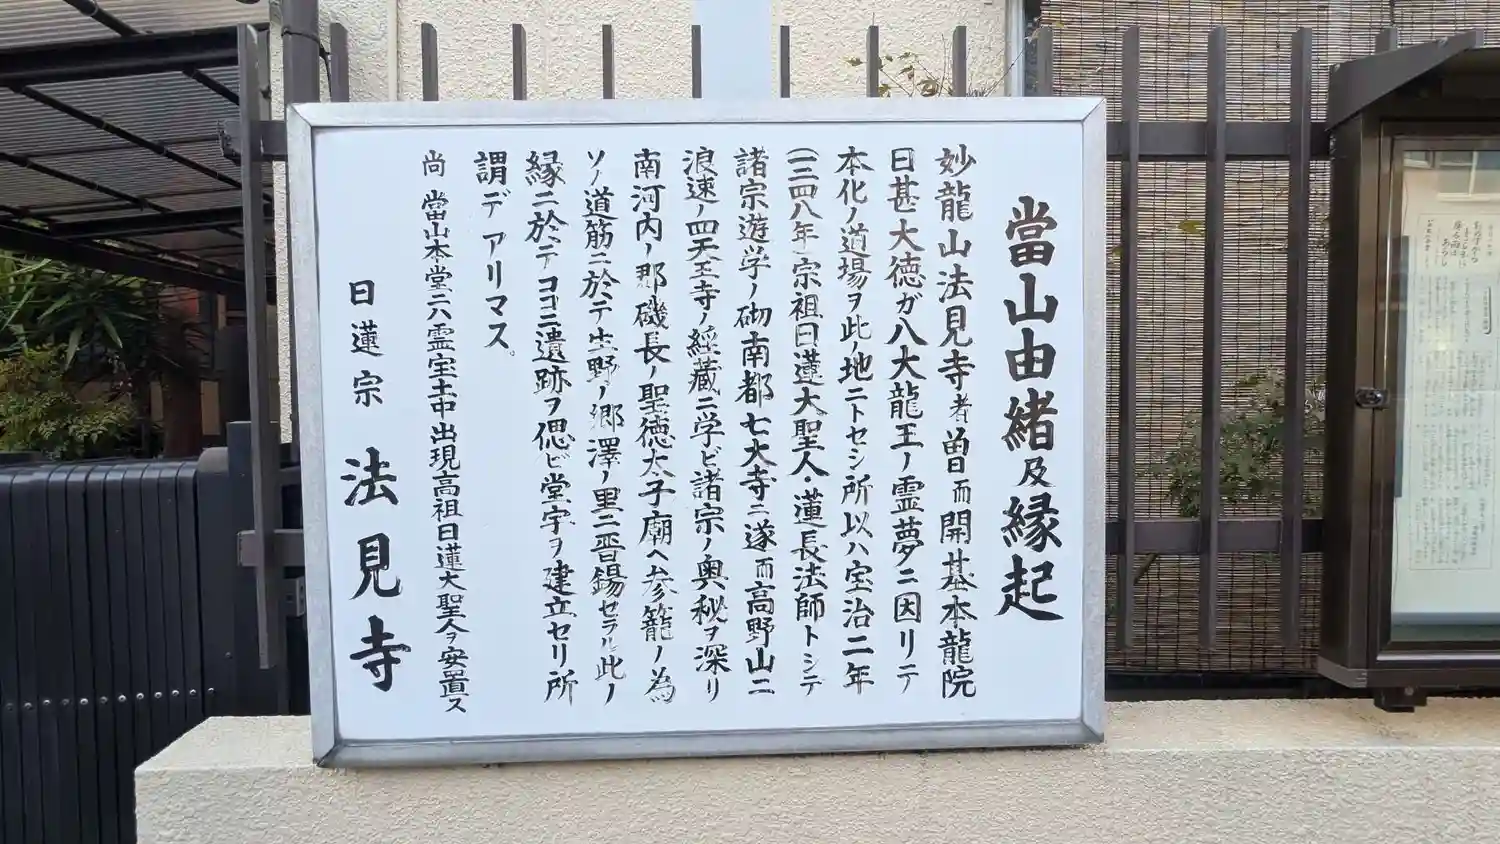 當山由緒及縁起
妙龍山法見寺者曽而開基本龍院
日甚大徳ガ八大龍王ノ霊夢ニ因リテ
本化ノ道場ヲ此ノ地ニトセシ所以ハ宝治二年
(一二四八年)宗祖日蓮大聖人・蓮長法師トシテ
諸宗遊学ノ砌南都七大寺ニ遂而高野山ニ
浪速ノ四天王寺ノ経蔵ニ学ビ諸宗ノ奥秘ヲ深リ
南河内ノ郡磯長ノ聖徳太子廟ヘ参籠ノ為
ソノ道筋ニ於テ生野ノ郷澤ノ里ニ晋錫セラル此ノ
縁ニ於テココニ遺跡ヲ偲ビ堂宇ヲ建立セリ所
謂デアリマス。
尚 當山本堂ニハ霊宝土中出現高祖日蓮大聖人ヲ安置ス
日蓮宗 法見寺